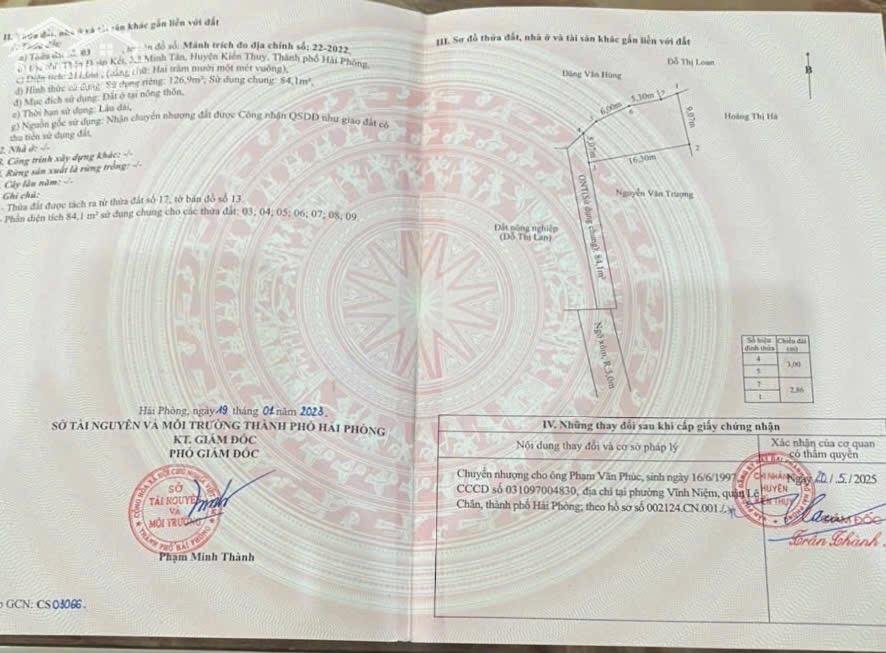 II. Thửa đất, nhà ở và tài sản khác gắn liền với đất
1. Thửa đất:
a) Thửa đất số: 03 bản đồ số: Mảnh trích đo địa chính số: 22-2022,
b) Địa chỉ: Thôn Đoàn Kết, Xã Minh Tân, Huyện Kiến Thụy, Thành phố Hải Phòng,
c) Diện tích: 211,0m², (bằng chữ: Hai trăm mười một mét vuông),
d) Hình thức sử dụng: Sử dụng riêng: 126,9m²; Sử dụng chung: 84,1m²,
đ) Mục đích sử dụng: Đất ở tại nông thôn,
e) Thời hạn sử dụng: Lâu dài,
g) Nguồn gốc sử dụng: Nhận chuyển nhượng đất được Công nhận QSDĐ như giao đất có
thu tiền sử dụng đất.
2. Nhà ở: -/-
3. Công trình xây dựng khác: -/-
Rừng sản xuất là rừng trồng: -/-
Cây lâu năm: -/-
Ghi chú:
- Thửa đất được tách ra từ thửa đất số 17, tờ bản đồ số 13.
- Phần diện tích 84,1 m² sử dụng chung cho các thửa đất: 03; 04; 05; 06; 07; 08; 09.
Hải Phòng, ngày 19 tháng 01 năm 2023.
SỞ TÀI NGUYÊN VÀ MÔI TRƯỜNG THÀNH PHỐ HẢI PHÒNG
KT. GIÁM ĐỐC
PHÓ GIÁM ĐỐC
SỞ
TÀI NGUYÊN
VÀ
MÔI TRƯỜNG
Phạm Minh Thành
GCN: CS03066.
III. Sơ đồ thửa đất, nhà ở và tài sản khác gắn liền với đất
Đỗ Thị Loan
Đặng Văn Hùng
B
5,30m
6,00m
9,07m
Hoàng Thị Hà
5,07m
16,30m
2
Nguyễn Văn Trượng
ONT(Sử dụng chung): 84,1m²
Đất nông nghiệp
(Đỗ Thị Lan)
Ngõ xóm, R 3,0m
Số hiệu đỉnh thửa | Chiều dài (m)
4
3,00
5
7
2,86
1
IV. Những thay đổi sau khi cấp giấy chứng nhận
Nội dung thay đổi và cơ sở pháp lý
Xác nhận của cơ quan
có thẩm quyền
Chuyển nhượng cho ông Phạm Văn Phúc, sinh ngày 16/6/1997,
CCCD số 031097004830, địa chỉ tại phường Vĩnh Niệm, quận Lê
Chân, thành phố Hải Phòng; theo hồ sơ số 002124.CN.001./.
Ngày 20/5/2025
CHI NHÁNH
HUYỆN
KIẾN THỤY
GIÁM ĐỐC
Trần Thành